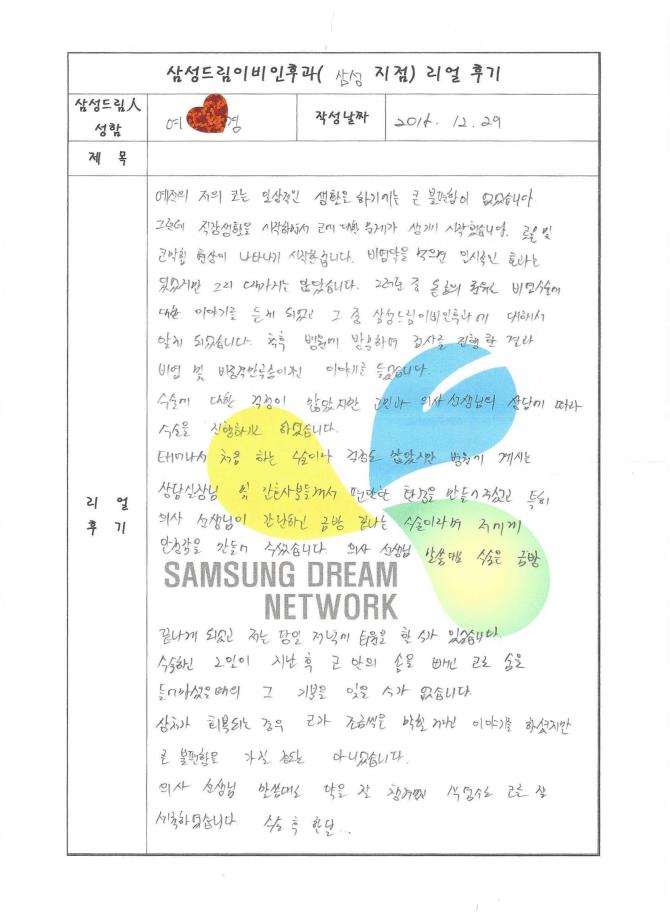 삼성드림이비인후과( 삼성 지점) 리얼 후기
삼성드림人
성함
여 경
작성날짜
2014. 12. 29
제 목
리 얼
후 기
예전의 저의 코는 일상적인 생활을 하기에는 큰 불편함이 없었습니다.
그런데 직장생활을 시작하면서 코에 대한 문제가 생기기 시작했습니다. 콧물 및
코막힘 현상이 나타나기 시작했습니다. 비염약을 먹으면 일시적인 효과는
있었지만 그리 오래가지는 않았습니다. 그러던 중 비염수술에
대한 이야기를 듣게 되었고 그 중 삼성드림이비인후과에 대해서
알게 되었습니다. 병원에 방문하여 검사를 진행한 결과
비염 및 비중격만곡증이란 이야기를 들었습니다.
수술에 대한 걱정이 많았지만 고민과 의사 선생님의 상담에 따라
수술을 진행하기로 하였습니다.
태어나서 처음 하는 수술이라 걱정도 많았지만 병원에 계시는
상담실장님 및 간호사분들께서 편안한 환경을 만들어 주셨고 특히
의사 선생님이 간단하고 금방 끝나는 수술이라며 저에게
안정감을 만들어 주셨습니다. 의사 선생님 말씀대로 수술은 금방
SAMSUNG DREAM
NETWORK
끝나게 되었고 저는 당일 저녁에 퇴원을 할 수가 있었습니다.
수술하고 2일이 지난 후 코 안의 솜을 빼고 코로 숨을
들이마셨을때의 그 기분을 잊을 수가 없습니다.
상처가 회복되는 경우 코가 조금씩은 막힐 거란 이야기를 하셨지만
큰 불편함을 가질 정도는 아니었습니다.
의사 선생님 말씀대로 약을 잘 챙겨먹고 식염수로 코를 잘
세척하였습니다 수술 후 한달...